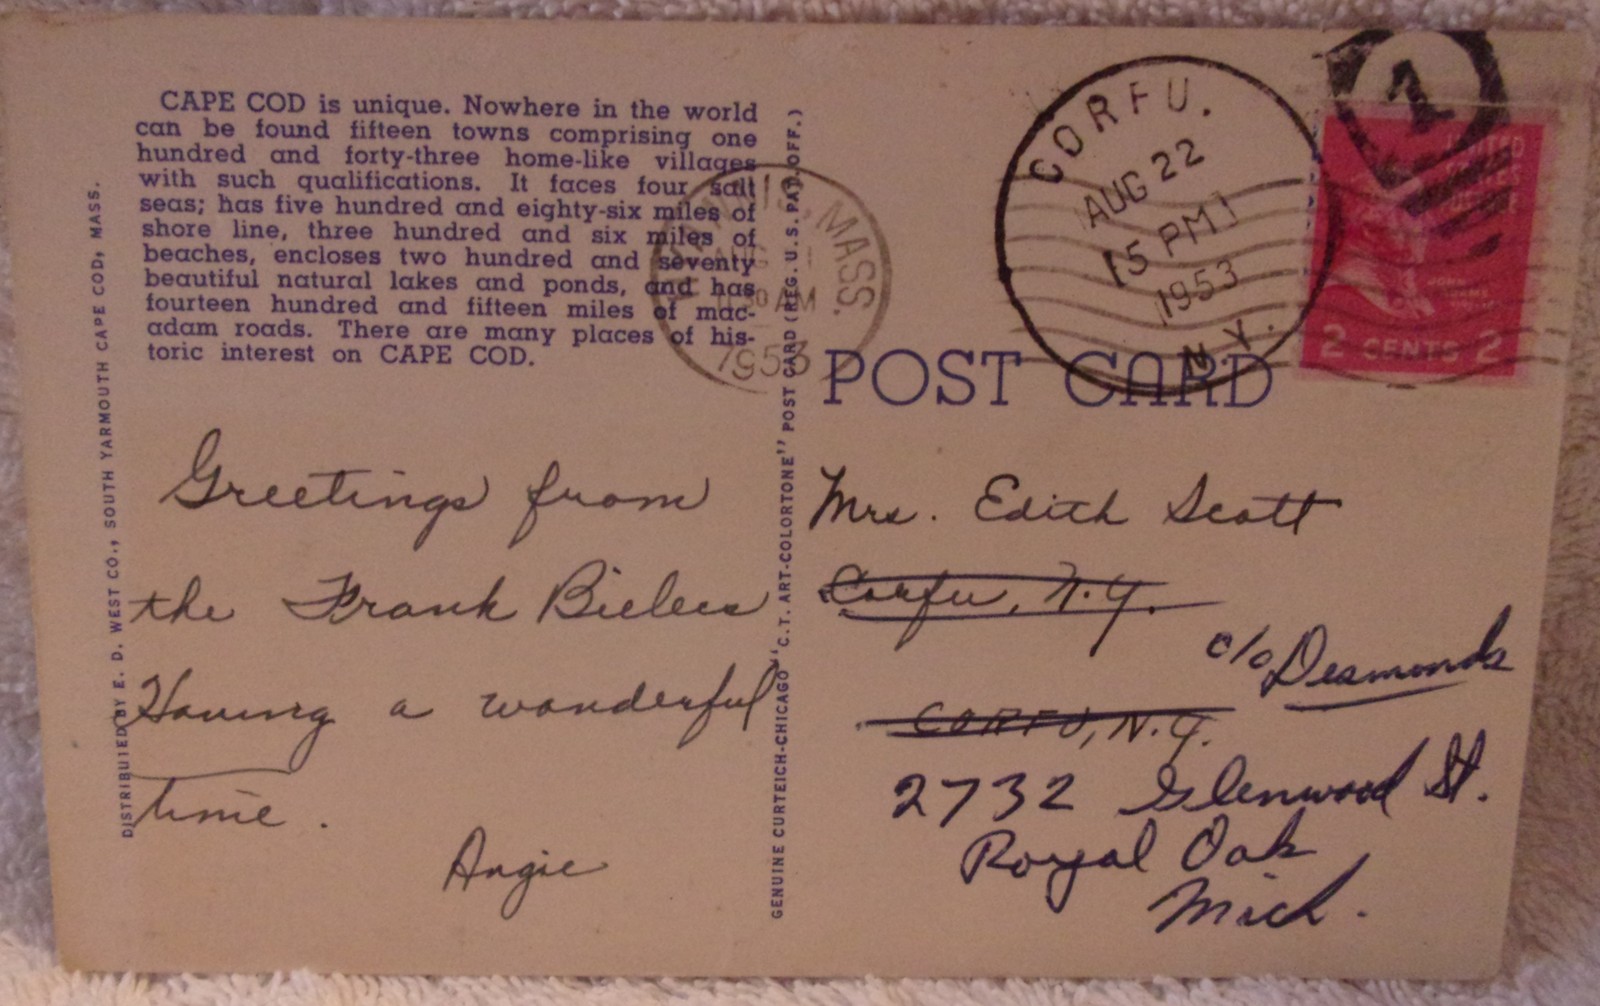 CAPE COD is unique. Nowhere in the world
can be found fifteen towns comprising one
hundred and forty-three home-like villages
with such qualifications. It faces four salt
seas; has five hundred and eighty-six miles of
shore line, three hundred and six miles of
beaches, encloses two hundred and seventy
beautiful natural lakes and ponds, and has
fourteen hundred and fifteen miles of mac-
adam roads. There are many places of his-
toric interest on CAPE COD.
DISTRIBUTED BY E. D. WEST CO., SOUTH YARMOUTH CAPE COD, MASS.
Greetings from
the Frank Bielecs
Having a wonderful
time.
Angie
GENUINE CURTEICH-CHICAGO "C.T. ART-COLORTONE" POST CARD (REG. U. S. PAT. OFF.)
HYANNIS, MASS.
AUG
30 AM
1953
CORFU.
AUG 22
5 PM
1953
N.Y.
1
UNITED
STATES
POSTAGE
JOHN
ADAMS
2 CENTS 2
POST CARD
Mrs. Edith Scott
Corfu, N.Y.
c/o Desmonds
CORFU, N.Y.
2732 Glenwood St.
Royal Oak
Mich.